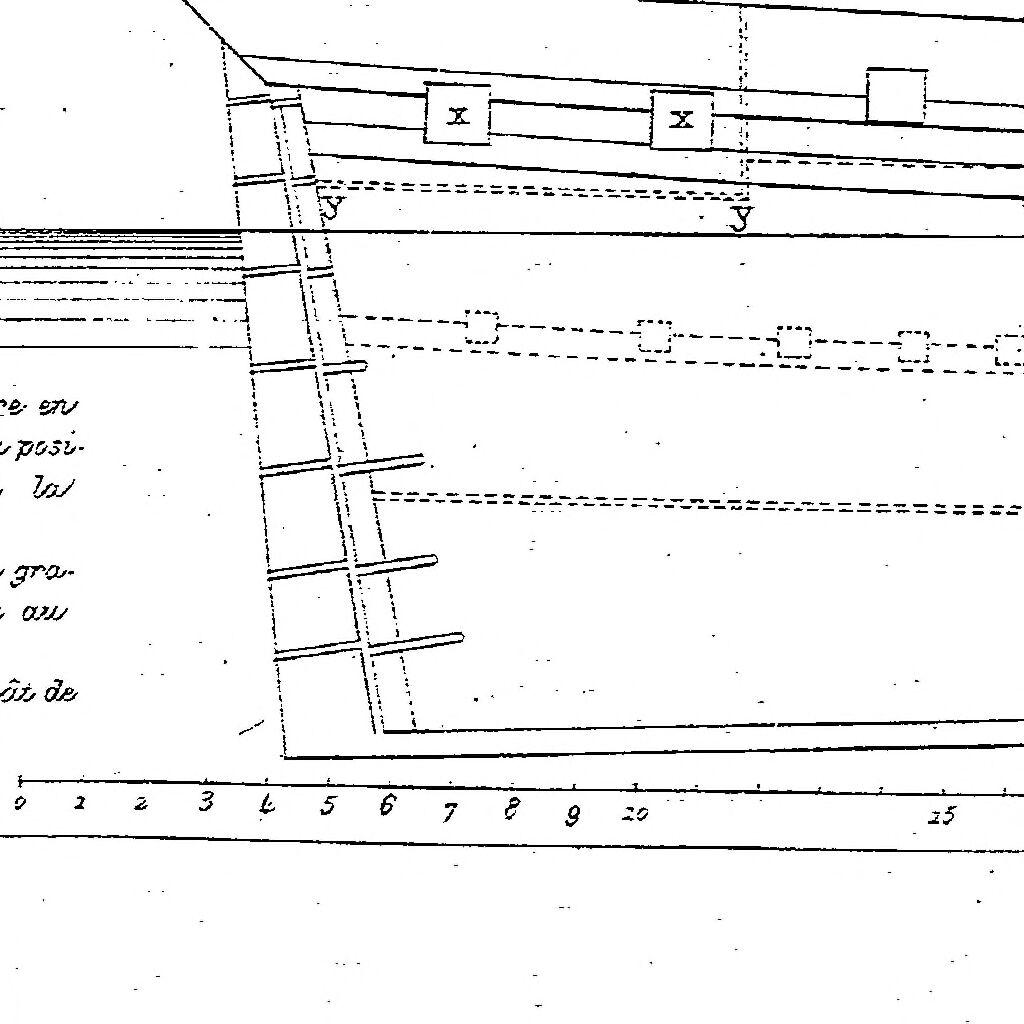 x x
y
y
re en
posi-
la
gra-
au
ât de
0 1 2 3 4 5 6 7 8 9 10 15